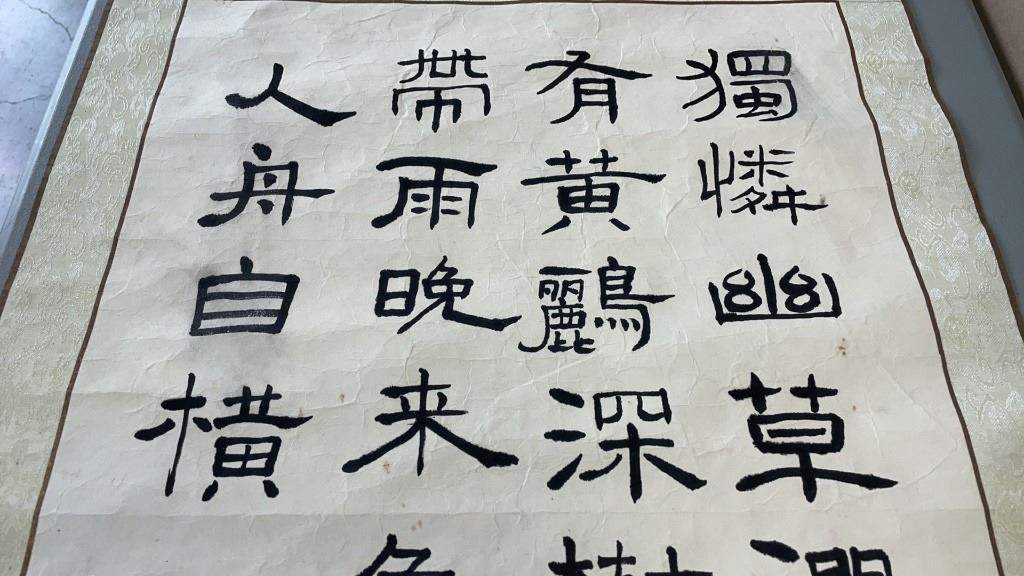 獨憐幽草
有黃鸝深
帶雨晚来
人舟自橫